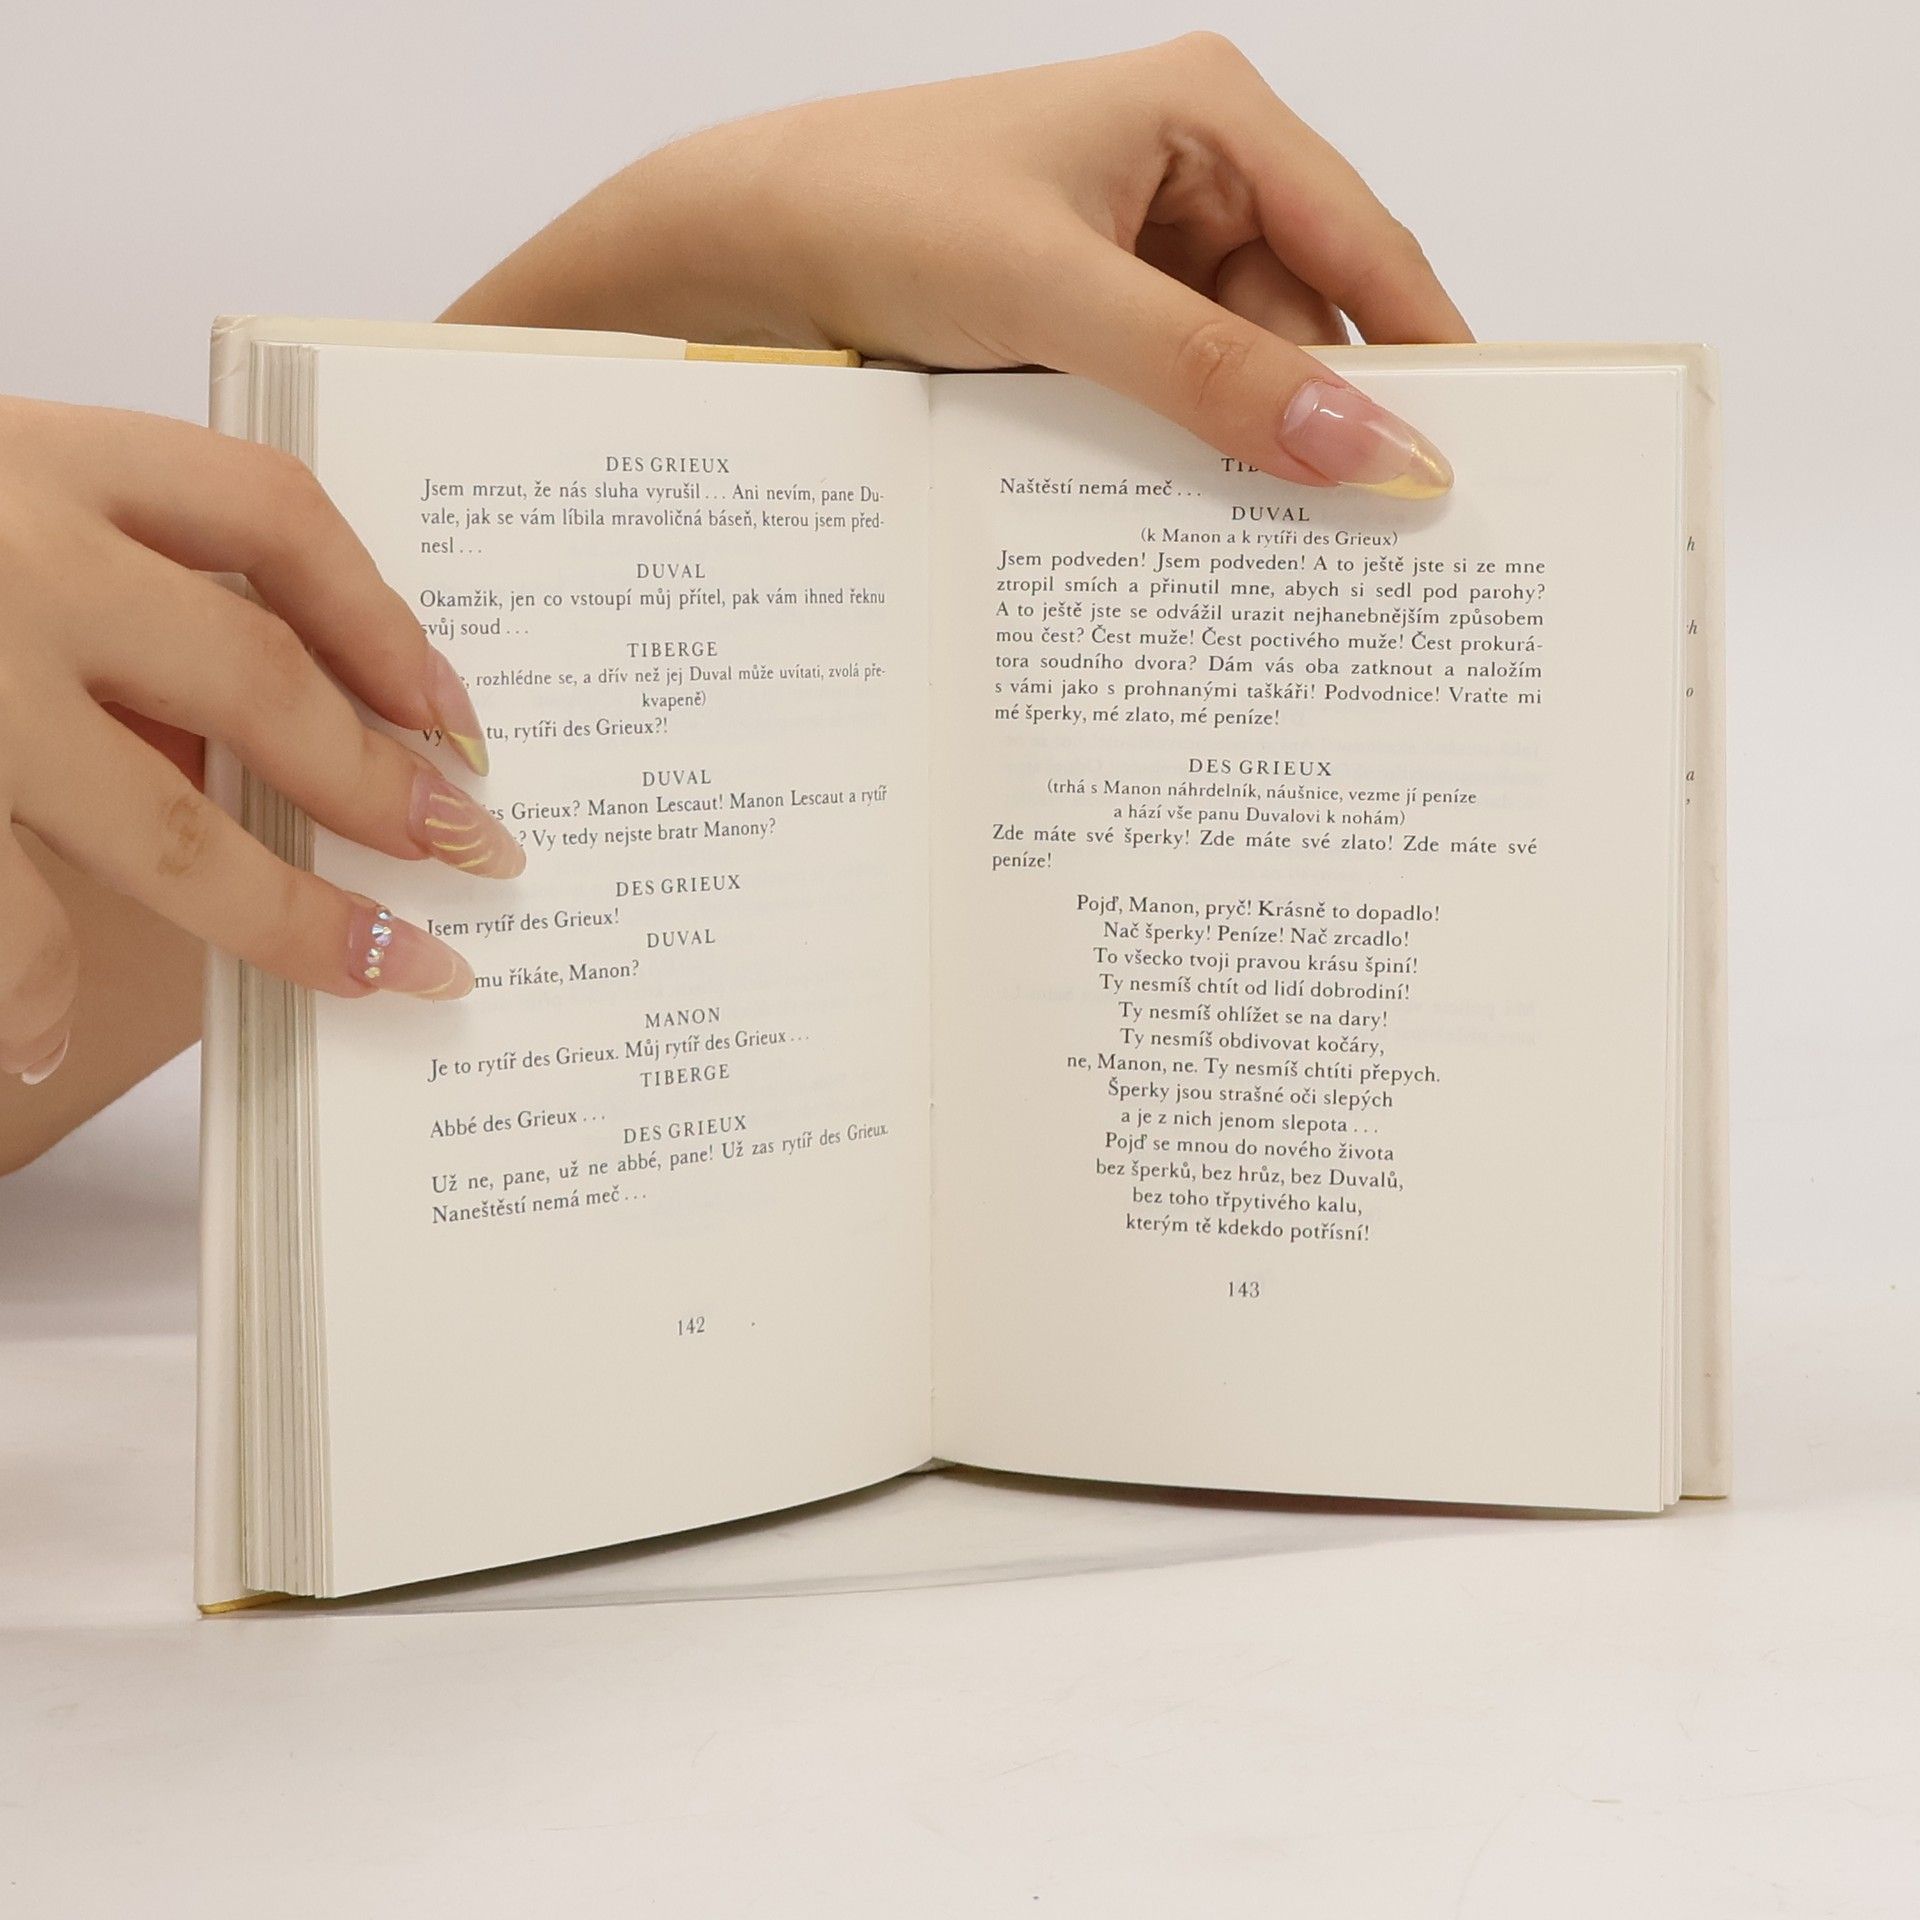 DES GRIEUX
Jsem mrzut, že nás sluha vyrušil... Ani nevím, pane Du-
vale, jak se vám líbila mravoličná báseň, kterou jsem před-
nesl...
DUVAL
Okamžik, jen co vstoupí můj přítel, pak vám ihned řeknu
svůj soud...
TIBERGE
rozhlédne se, a dřív než jej Duval může uvítati, zvolá pře-
kvapeně)
tu, rytíři des Grieux?!
DUVAL
Grieux? Manon Lescaut! Manon Lescaut a rytíř
? Vy tedy nejste bratr Manony?
DES GRIEUX
Jsem rytíř des Grieux!
DUVAL
mu říkáte, Manon?
MANON
Je to rytíř des Grieux. Můj rytíř des Grieux...
TIBERGE
Abbé des Grieux...
DES GRIEUX
Už ne, pane, už ne abbé, pane! Už zas rytíř des Grieux.
Naneštěstí nemá meč...
142
Naštěstí nemá meč...
DUVAL
(k Manon a k rytíři des Grieux)
Jsem podveden! Jsem podveden! A to ještě jste si ze mne
ztropil smích a přinutil mne, abych si sedl pod parohy?
A to ještě jste se odvážil urazit nejhanebnějším způsobem
mou čest? Čest muže! Čest poctivého muže! Čest prokurá-
tora soudního dvora? Dám vás oba zatknout a naložím
s vámi jako s prohnanými taškáři! Podvodnice! Vraťte mi
mé šperky, mé zlato, mé peníze!
DES GRIEUX
(trhá s Manon náhrdelník, náušnice, vezme jí peníze
a hází vše panu Duvalovi k nohám)
Zde máte své šperky! Zde máte své zlato! Zde máte své
peníze!
Pojď, Manon, pryč! Krásně to dopadlo!
Nač šperky! Peníze! Nač zrcadlo!
To všecko tvoji pravou krásu špiní!
Ty nesmíš chtít od lidí dobrodiní!
Ty nesmíš ohlížet se na dary!
Ty nesmíš obdivovat kočáry,
ne, Manon, ne. Ty nesmíš chtíti přepych.
Šperky jsou strašné oči slepých
a je z nich jenom slepota...
Pojď se mnou do nového života
bez šperků, bez hrůz, bez Duvalů,
bez toho třpytivého kalu,
kterým tě kdekdo potřísní!
143